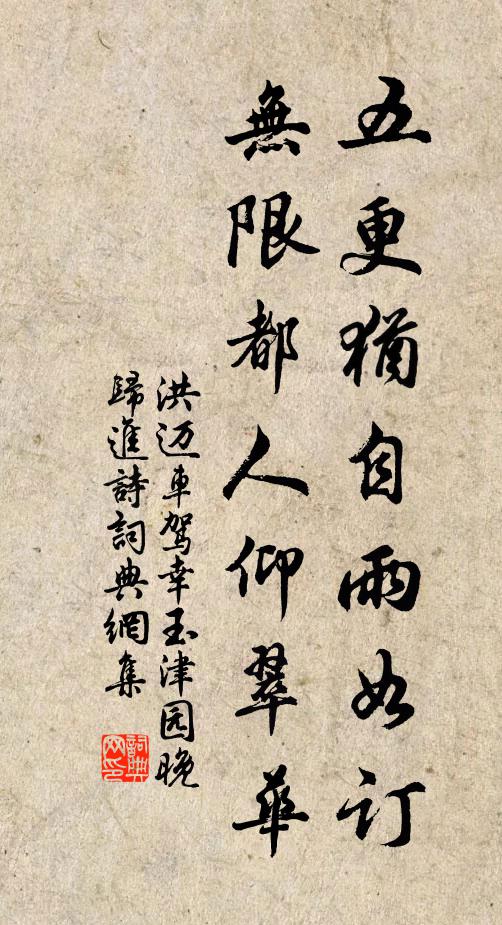 五更猶自雨如訂
無限都人仰翠華
洪迈車駕幸玉津园晚
歸進詩詞典網集
詞典
网印